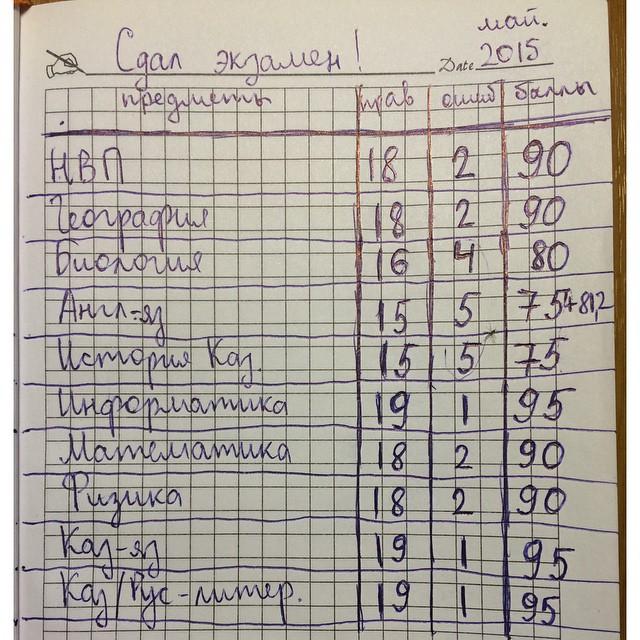 май.
Сдал экзамен! Date 2015
предметы прав ошиб баллы
НВП 18 2 90
География 18 2 90
Биология 16 4 80
Англ-яз 15 5 75+81,2
История Каз. 15 5 75
Информатика 19 1 95
Математика 18 2 90
Физика 18 2 90
Каз-яз 19 1 95
Каз/Рус-литер. 19 1 95